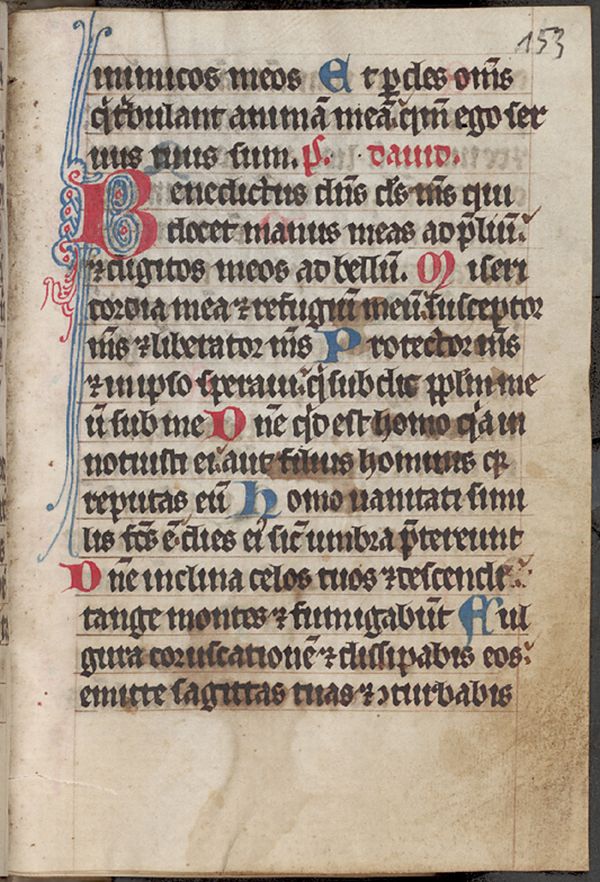 153
inimicos meos Et p̱des om̄s
q̇ t̾bulant animā meā: qm̄ ego ser
uus tuus sum. P̄s. dauid.
Benedictus dn̄s ds̄ m̄s qui
docet manus meas ad p̄liū:
⁊ digitos meos ad bellū. Miseri
cordia mea ⁊ refugiū meū: susceptor
m̄s ⁊ liberator m̄s Protector m̄s
⁊ in ipso speraui: q̇ subdit pp̄lm me
ū sub me Dn̄e qͥd est homo qͥa in
notuisti ei: aut filius hominis qꝛ
reputas eū Homo uanitati simi
lis fc̄s ē: dies eiꝰ sic̄ umbra p̄tereunt
Dn̄e inclina celos tuos ⁊ descende:
tange montes ⁊ fumigabūt Ful
gura coruscationē ⁊ dissipabis eos:
emitte sagittas tuas ⁊ ↄturbabis